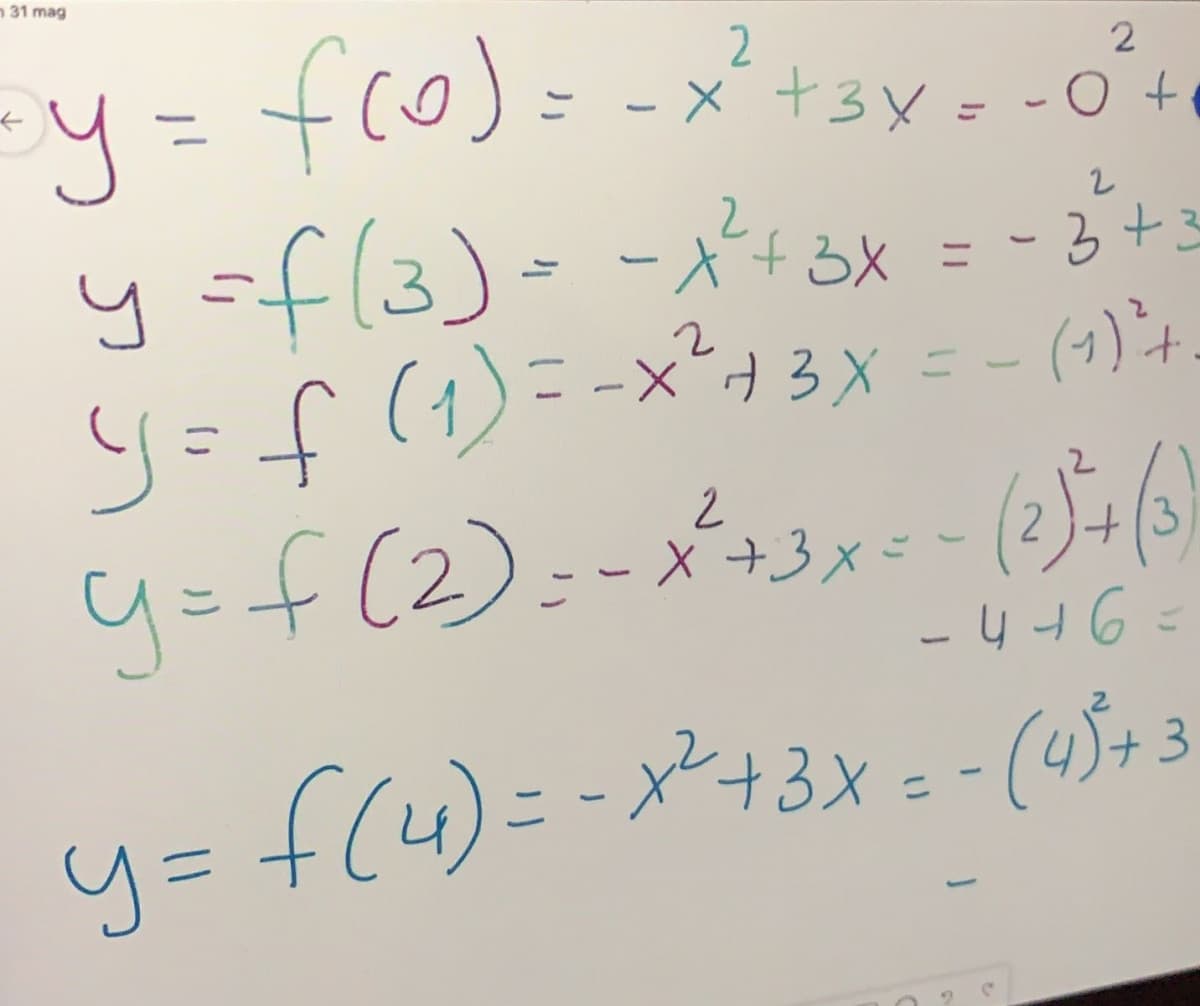 31 mag
y = f(0) = -x² + 3x = -0² +
y = f(3) = -x² + 3x = -3² + 3
y = f(1) = -x² + 3x = -(1)² +
y = f(2) = -x² + 3x = -(2)² + (3)
-4 + 6 =
y = f(4) = -x² + 3x = -(4)² + 3
-